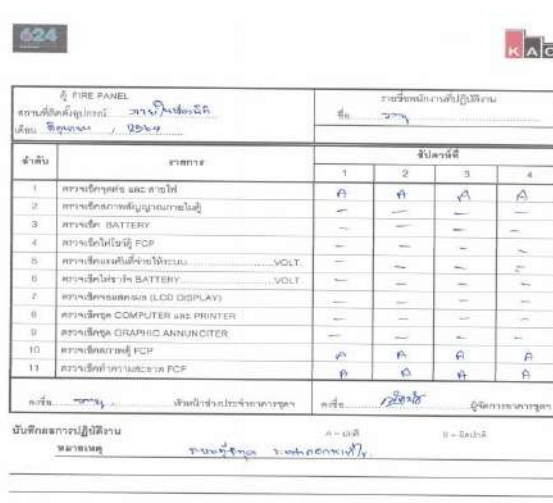 624
KAC
ตู้ FIRE PANEL
รายชื่อพนักงานที่ปฏิบัติงาน
สถานที่ติดตั้งอุปกรณ์
ชื่อ
เดือน มิถุนายน / 2564
ลำดับ รายการ สัปดาห์ที่
1 2 3 4
1 ตรวจเช็คจุดต่อ และ สายไฟ A A A A
2 ตรวจเช็คสภาพสัญญาณภายในตู้ - - - -
3 ตรวจเช็ค BATTERY - - - -
4 ตรวจเช็คไฟโชว์ตู้ FCP - - - -
5 ตรวจเช็คแรงดันที่จ่ายให้ระบบ VOLT. - - - -
6 ตรวจเช็คไฟชาร์จ BATTERY VOLT. - - - -
7 ตรวจเช็คจอแสดงผล (LCD DISPLAY) - - - -
8 ตรวจเช็คชุด COMPUTER และ PRINTER - - - -
9 ตรวจเช็คชุด GRAPHIC ANNUNCITER - - - -
10 ตรวจเช็คสภาพตู้ FCP A A A A
11 ตรวจเช็คทำความสะอาด FCP A A A A
ลงชื่อ หัวหน้าช่างประจำอาคารชุดฯ ลงชื่อ ผู้จัดการอาคารชุดฯ
บันทึกผลการปฏิบัติงาน A = ปกติ B = ผิดปกติ
หมายเหตุ